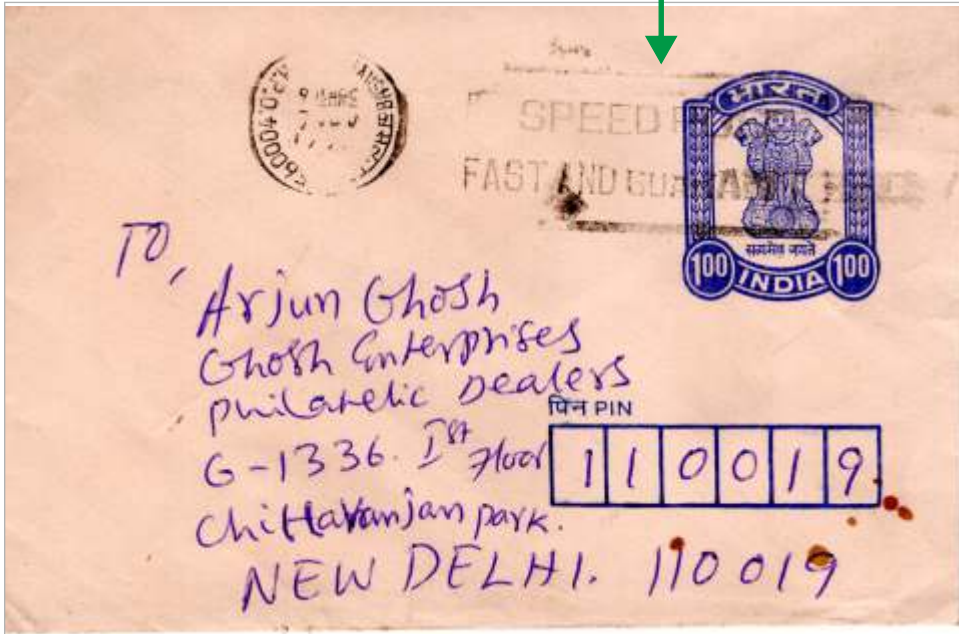 SPEED
FAST AND
भारत
सत्यमेव जयते
100 INDIA 100
TO,
Arjun Ghosh
Ghosh Enterprises
Philatelic Dealers
G-1336. Ist Floor
Chittaranjan park.
NEW DELHI. 110019
पिन PIN
110019